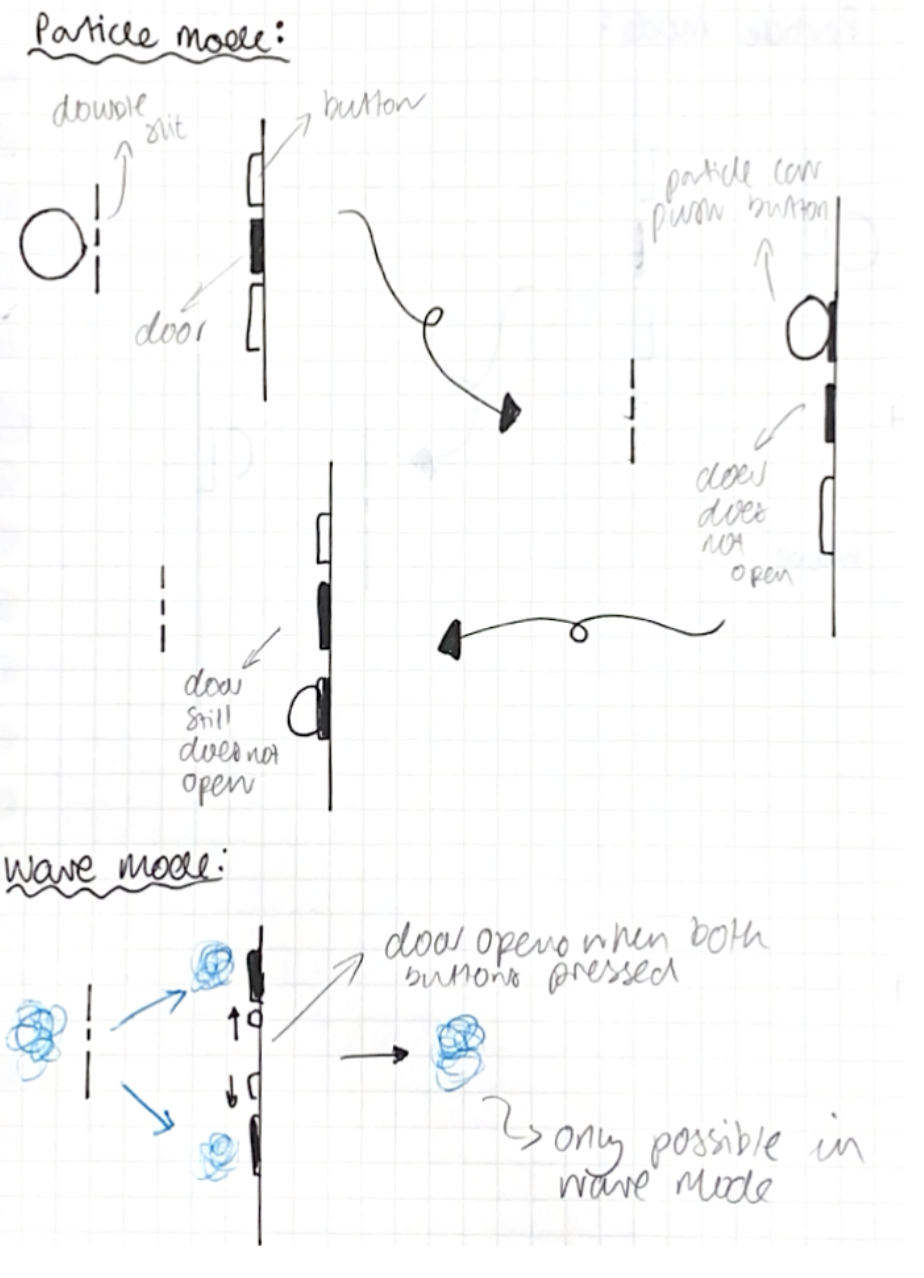 Particle mode:
double
slit
button
door
particle can
push button
door
does
not
open
door
still
does not
open
Wave mode:
door opens when both
buttons pressed
only possible in
wave mode